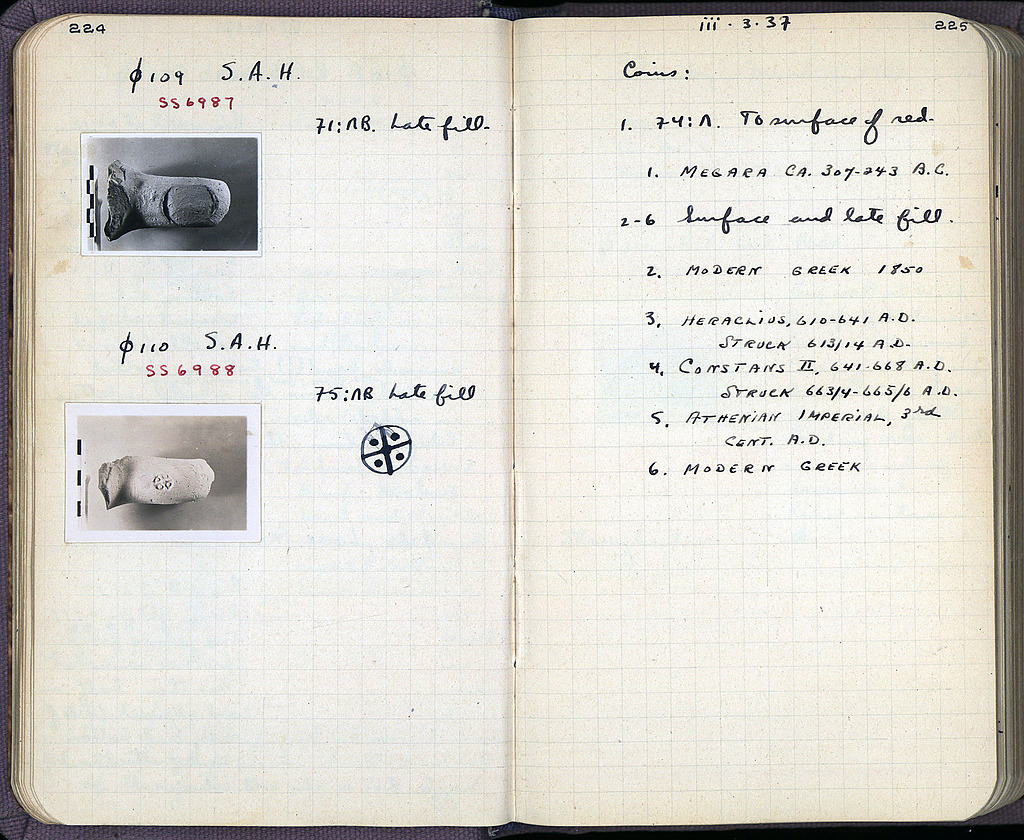 224
ϕ109 S.A.H.
SS6987
71:ΛB. Late fill.
ϕ110 S.A.H.
SS6988
75:ΛB Late fill
iii · 3 · 37
225
Coins:
1. 74:Λ. To surface of red.
1. MEGARA CA. 307-243 B.C.
2-6 Surface and late fill.
2. MODERN GREEK 1850
3. HERACLIUS, 610-641 A.D.
STRUCK 613/14 A.D.
4. CONSTANS II, 641-668 A.D.
STRUCK 663/4-665/6 A.D.
5. ATHENIAN IMPERIAL, 3rd
CENT. A.D.
6. MODERN GREEK